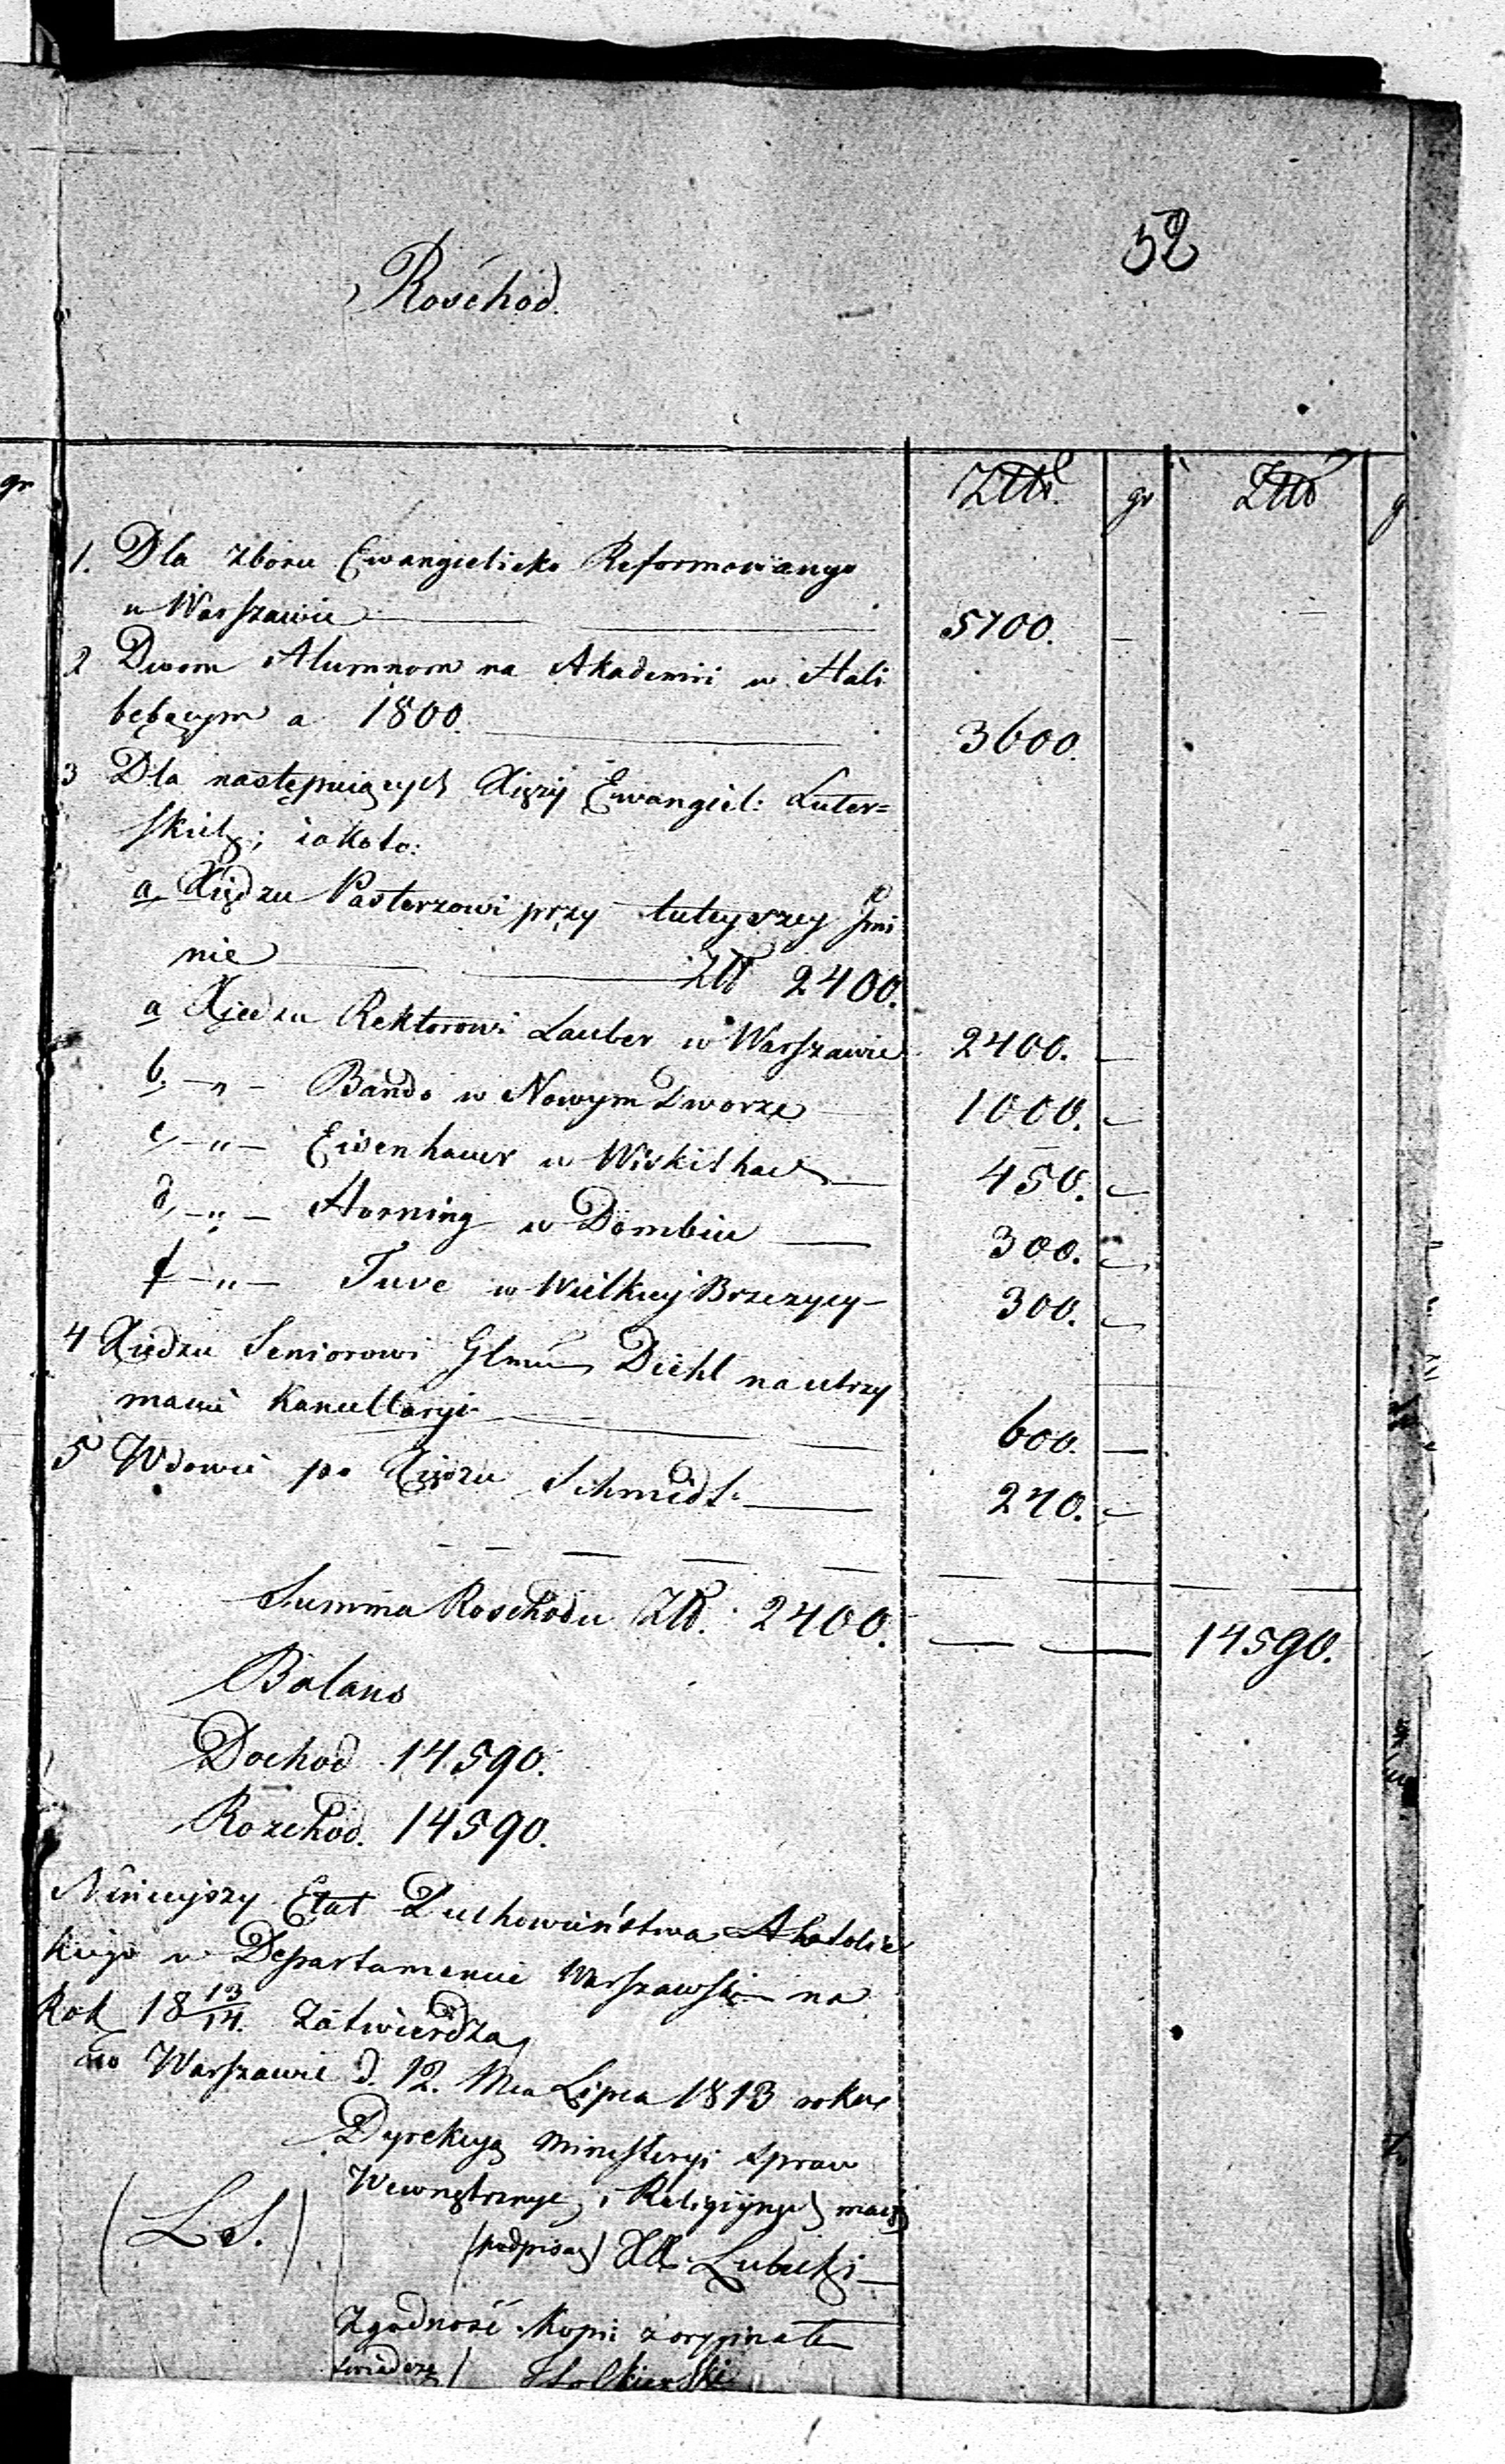 52
Roschod.
gr
Złł. gr Złł g
1. Dla zboru Ewangielicko Reformowanego
w Warszawie 5700.
2 Dwom Alumnom na Akademii w Hali
będącym a 1800. 3600.
3 Dla następuiących Xięży Ewangiel: Luter=
skich; iakoto:
a, Xiędzu Pasterzowi przy tuteyszey Gmi
nie Złł 2400.
a Xiedzu Rektorowi Lauber w Warszawie 2400.
b, -"- Bando w Nowym Dworze 1000.
c, -"- Eisenhauer w Wiskitkach 450.
d, -"- Horning w Dombiu 300.
f -"- Tuve w Wielkiey Brzezycy 300.
4 Xiedzu Seniorowi Diehl na utrzy
manie Kancellaryi 600.
5 Wdowie po Xiędzu Schmidt 240.
Summa Roschodu Złł. 2400. 14590.
Balans
Dochod 14590.
Rozchod. 14590.
Ninieyszy Etat Duchowieństwa Akatolic
kiego w Departamencie Warszawskim na
Rok 18 13/14. zatwierdza
w Warszawie d. 12. Mca Lipca 1813 roku
Dyrekcya Ministeryi Spraw
Wewnętrznych i Religiynych maiąc
(L.S.) (podpisany) Lubecki
Zgodność Kopii z oryginałem
świadczę